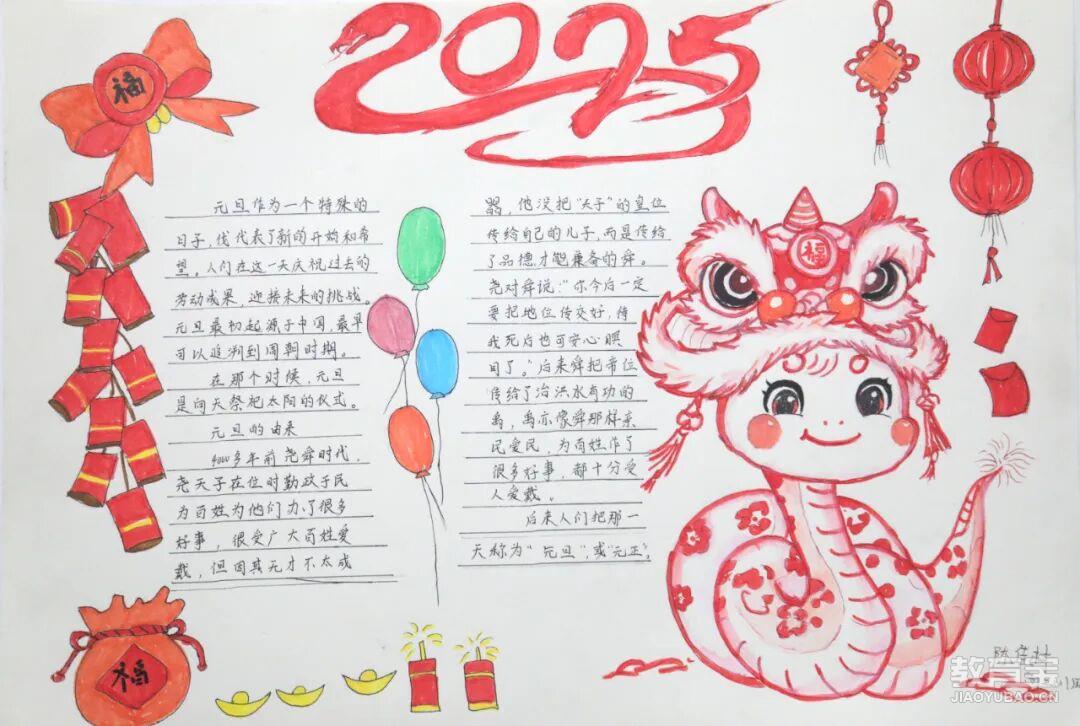 2025
福
元旦作为一个特殊的
日子,代表了新的开始和希
望。人们在这一天庆祝过去的
劳动成果,迎接未来的挑战。
元旦最初起源于中国,最早
可以追溯到周朝时期。
在那个时候,元旦
是向天祭祀太阳的仪式。
元旦的由来
4000多年前尧舜时代,
尧天子在位时勤政于民
为百姓为他们办了很多
好事,很受广大百姓爱
戴,但因其无才不太成
器,他没把“天子”的皇位
传给自己的儿子,而是传给
了品德才能兼备的舜。
尧对舜说:“你今后一定
要把地位传交好,待
我死后也可安心瞑
目了。”后来舜把帝位
传给了治洪水有功的
禹,禹亦像舜那样亲
民爱民,为百姓作了
很多好事,都十分受
人爱戴。
后来人们把那一
天称为“元旦”,或“元正”。
福
福
教育宝
JIAOYUBAO.CN